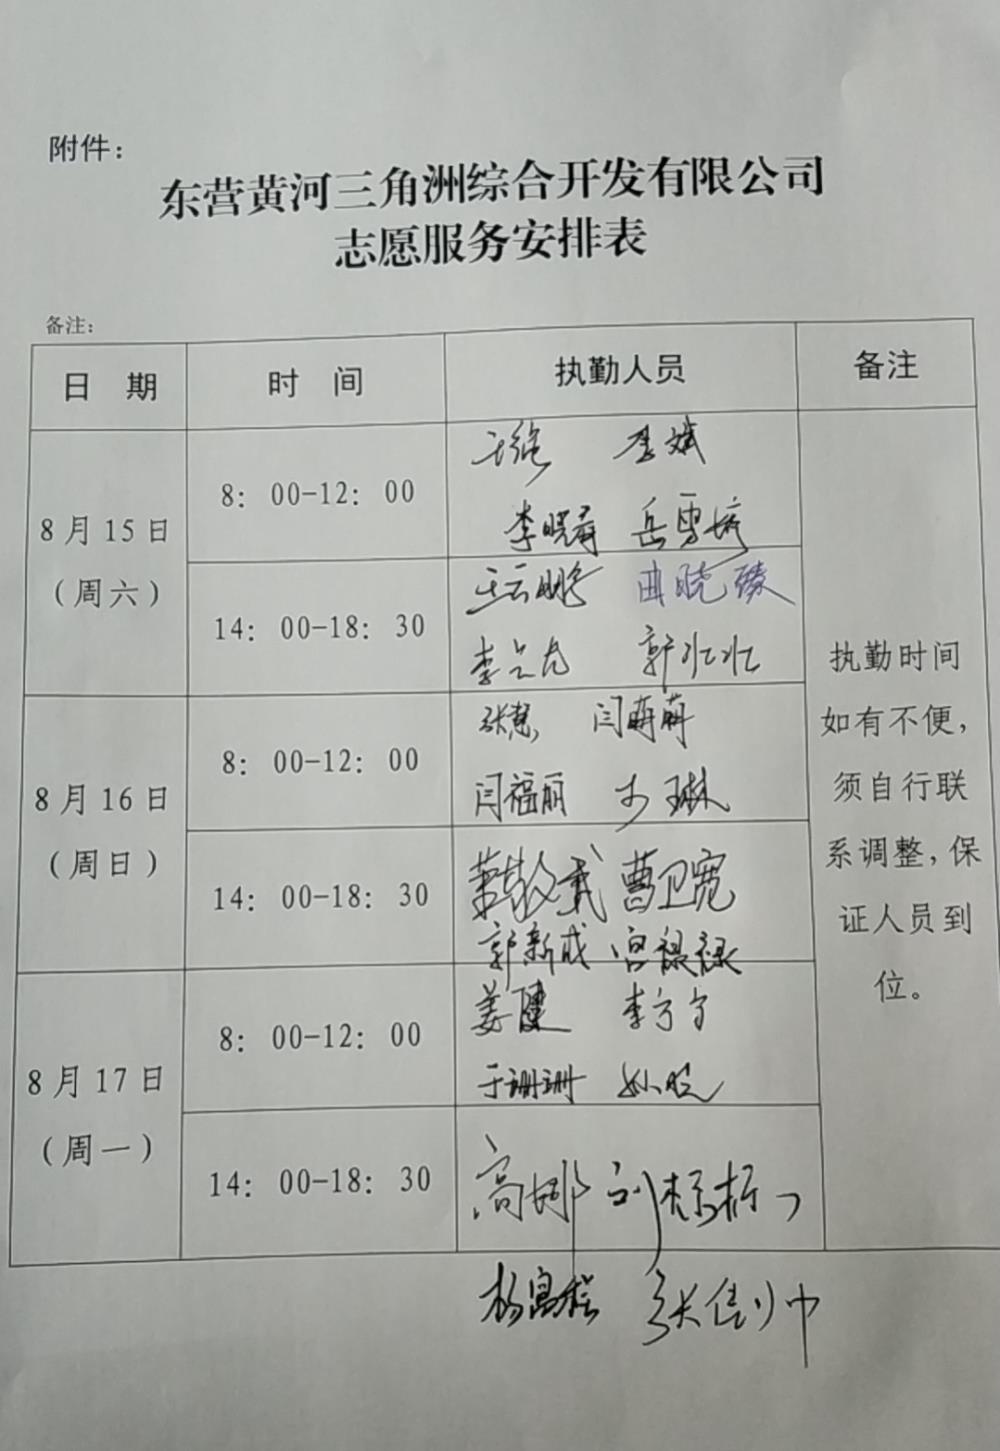 附件：
东营黄河三角洲综合开发有限公司
志愿服务安排表
备注：
日 期 时 间 执勤人员 备注
8月15日
（周六）
8：00-12：00
李斌
岳雪婷
14：00-18：30
曲晓臻
郭壮壮
8月16日
（周日）
8：00-12：00
张慧 闫萌萌
闫福丽
14：00-18：30
曹卫宽
郭新成 宫禄禄
8月17日
（周一）
8：00-12：00
姜健 李宁宁
于珊珊
14：00-18：30
高娜
杨富程 张佳帅
执勤时间
如有不便，
须自行联
系调整，保
证人员到
位。